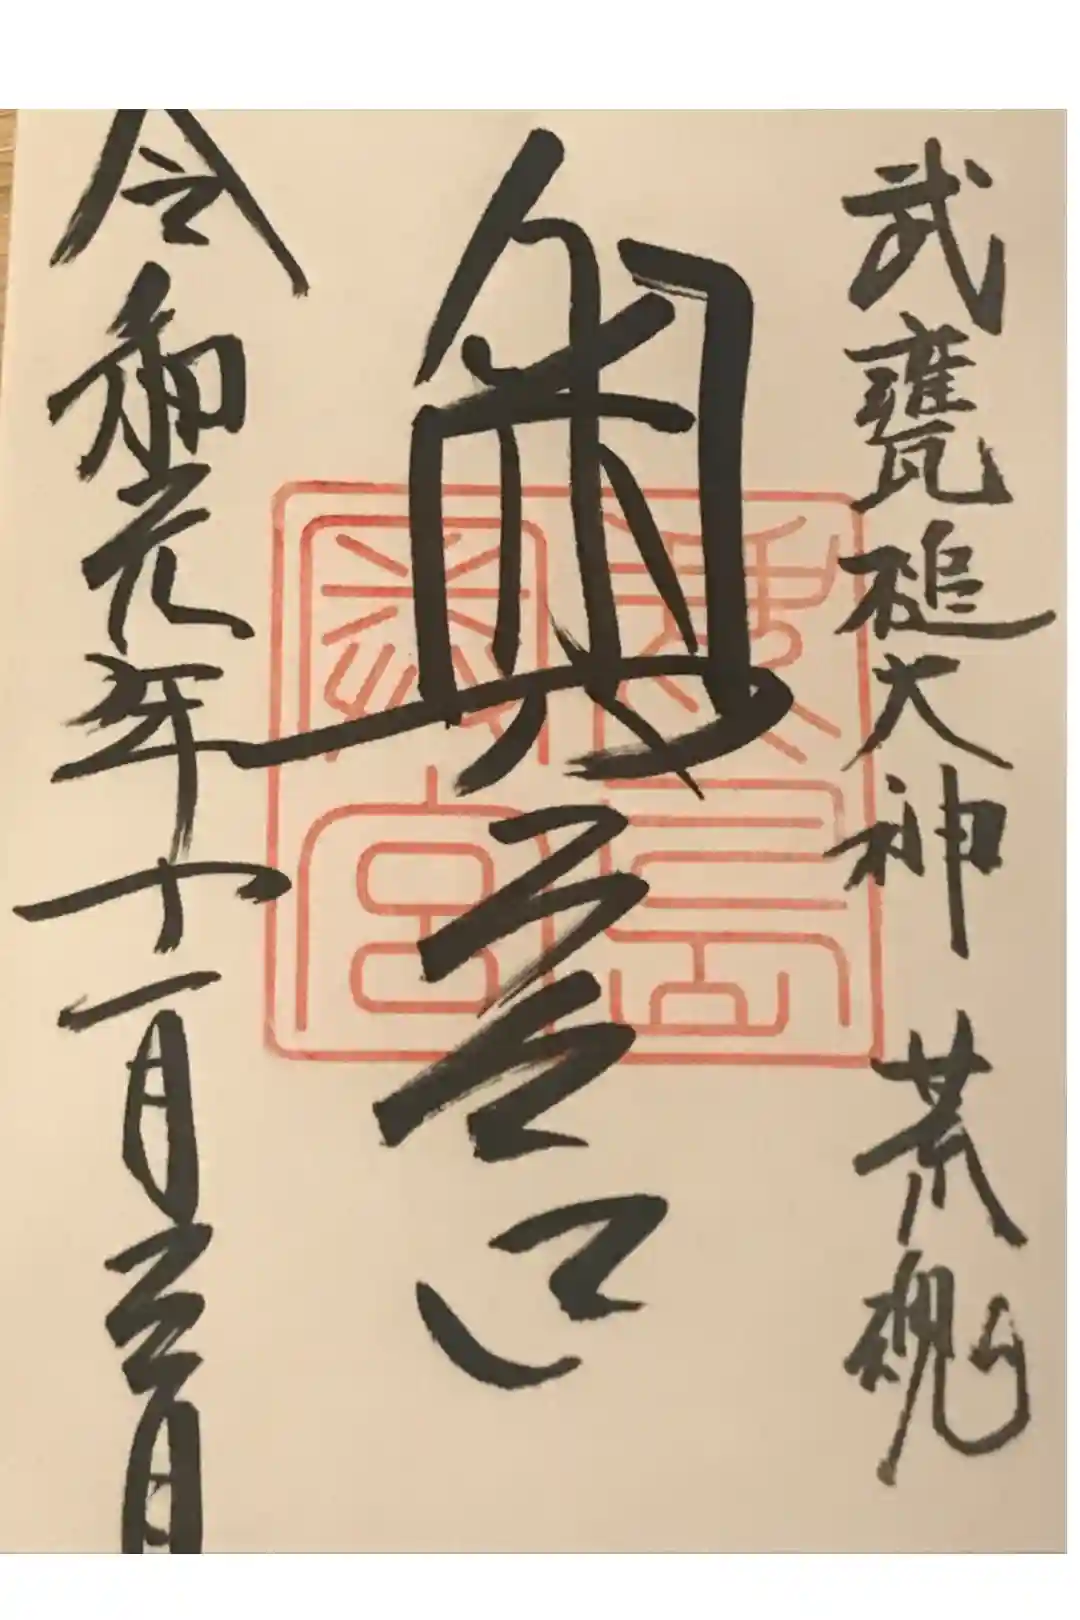 武甕槌大神 荒魂
奥宮
令和元年十一月三日
鹿島
奥宮